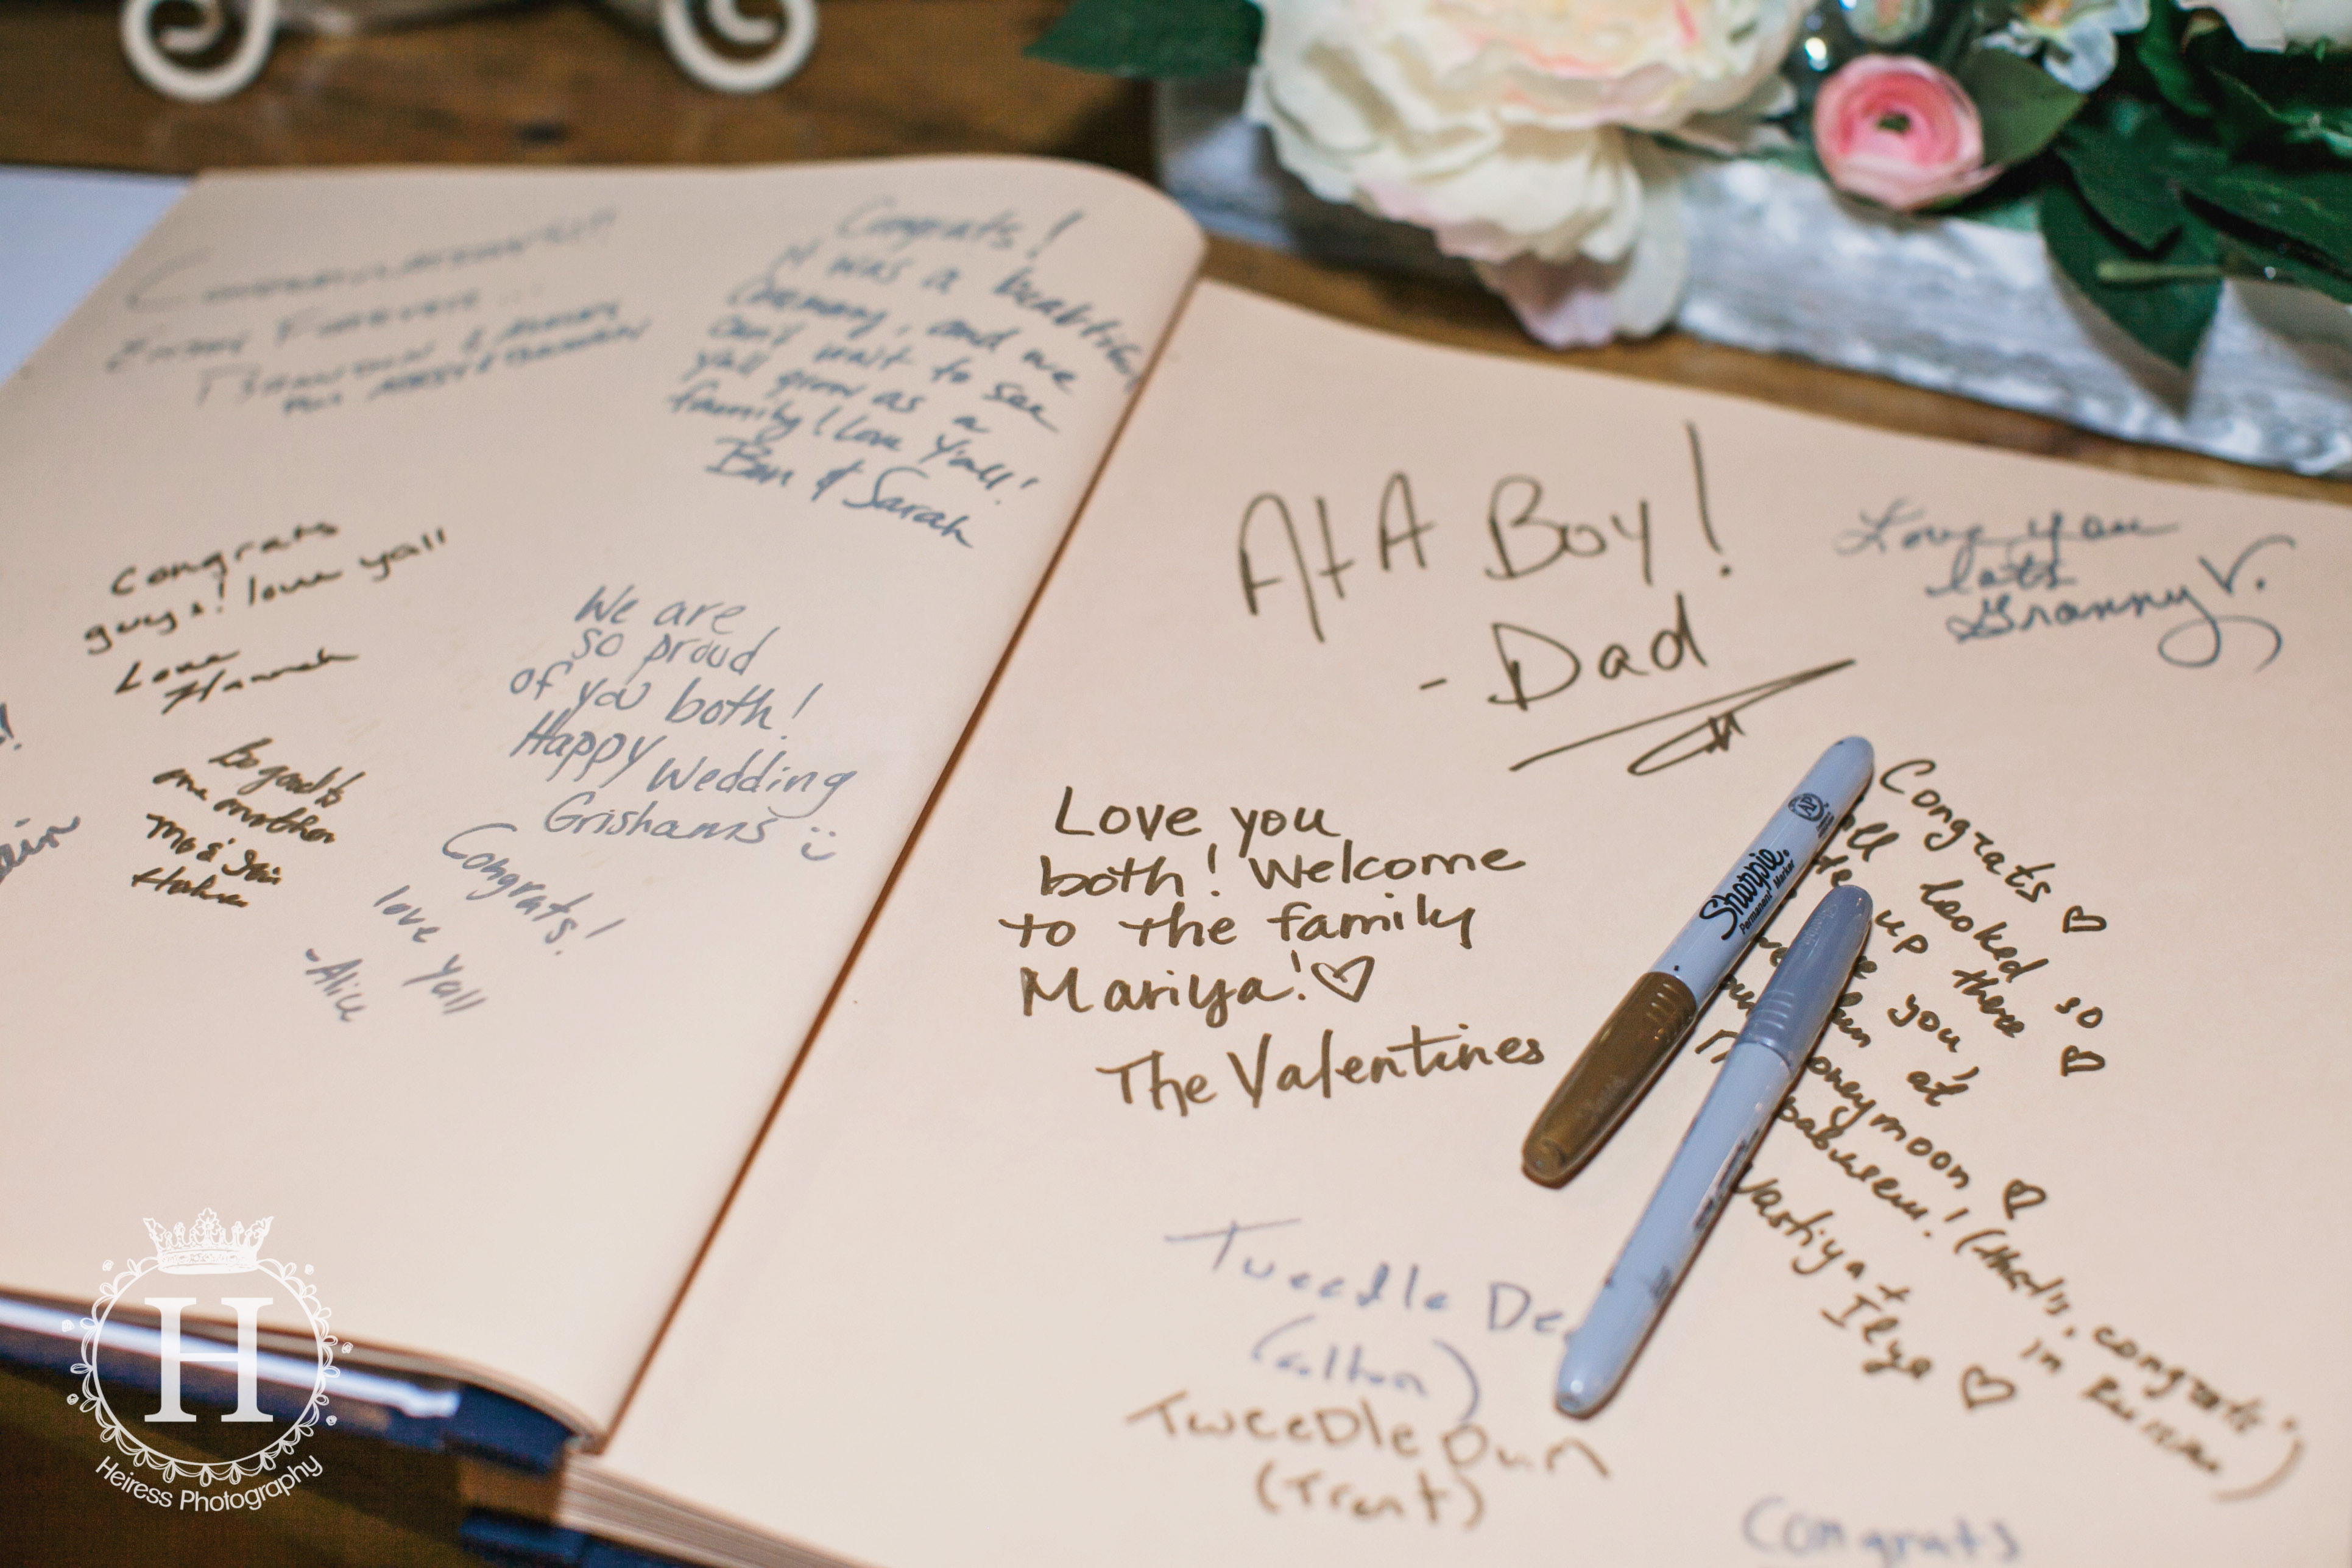 Congratulations!!!
Enjoy Forever...
Congrats!
It was a beautiful
ceremony, and we
can't wait to see
yall grow as a
family! Love Y'all!
Ben & Sarah
Congrats
guys! love yall
Love
Hannah
We are
so proud
of you both!
Happy Wedding
Grishams
Be good to
one another
Congrats!
love yall
-Alice
AtA Boy!
- Dad
Love you
lots
Granny V.
Love you
both! Welcome
to the family
Mariya!
The Valentines
Congrats
looked so
up there
you,
at
oneymoon
(that's "congrats"
in Russian)
Ilya
Sharpie
Permanent Marker
AP
Tweedle De
(Colton)
Tweedle Dum
(Trent)
Congrats
H
Heiress Photography